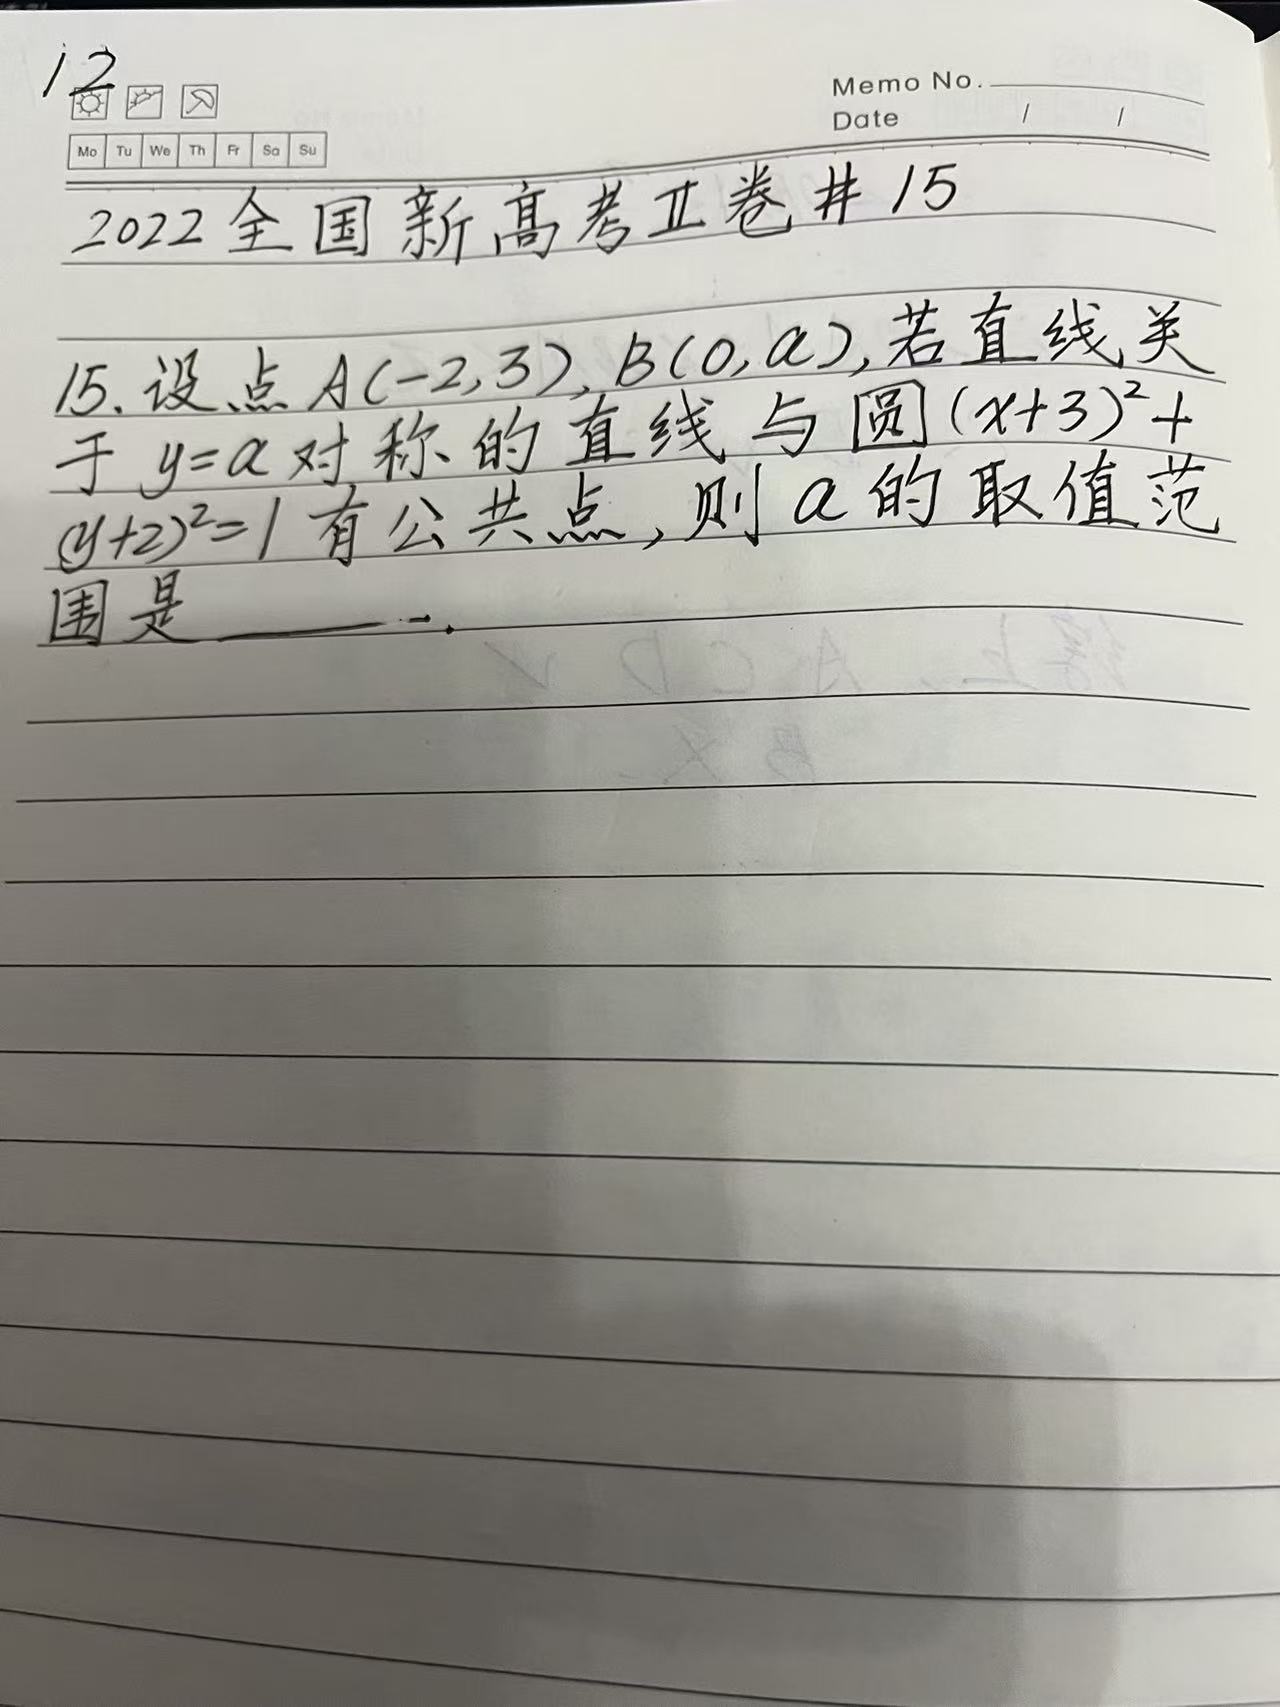 12
Memo No.
Date / /
Mo Tu We Th Fr Sa Su
2022全国新高考Ⅱ卷#15
15.设点A(-2,3),B(0,a),若直线关
于y=a对称的直线与圆(x+3)²+
(y+2)²=1有公共点,则a的取值范
围是______.